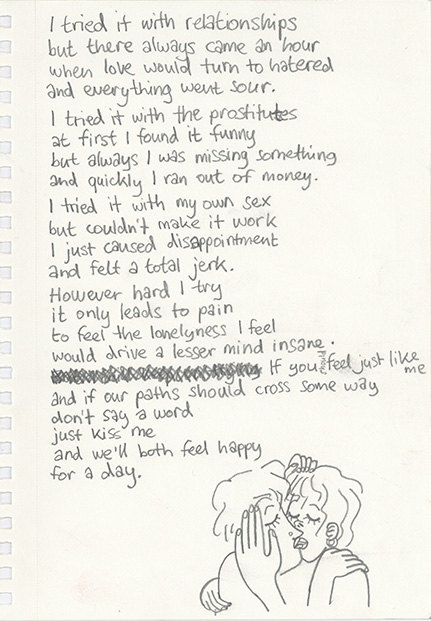 I tried it with relationships
but there always came an hour
when love would turn to hatered
and everything went sour.
I tried it with the prostitutes
at first I found it funny
but always I was missing something
and quickly I ran out of money.
I tried it with my own sex
but couldn't make it work
I just caused disappointment
and felt a total jerk.
However hard I try
it only leads to pain
to feel the lonelyness I feel
would drive a lesser mind insane.
If you feel just like me
and if our paths should cross some way
don't say a word
just kiss me
and we'll both feel happy
for a day.